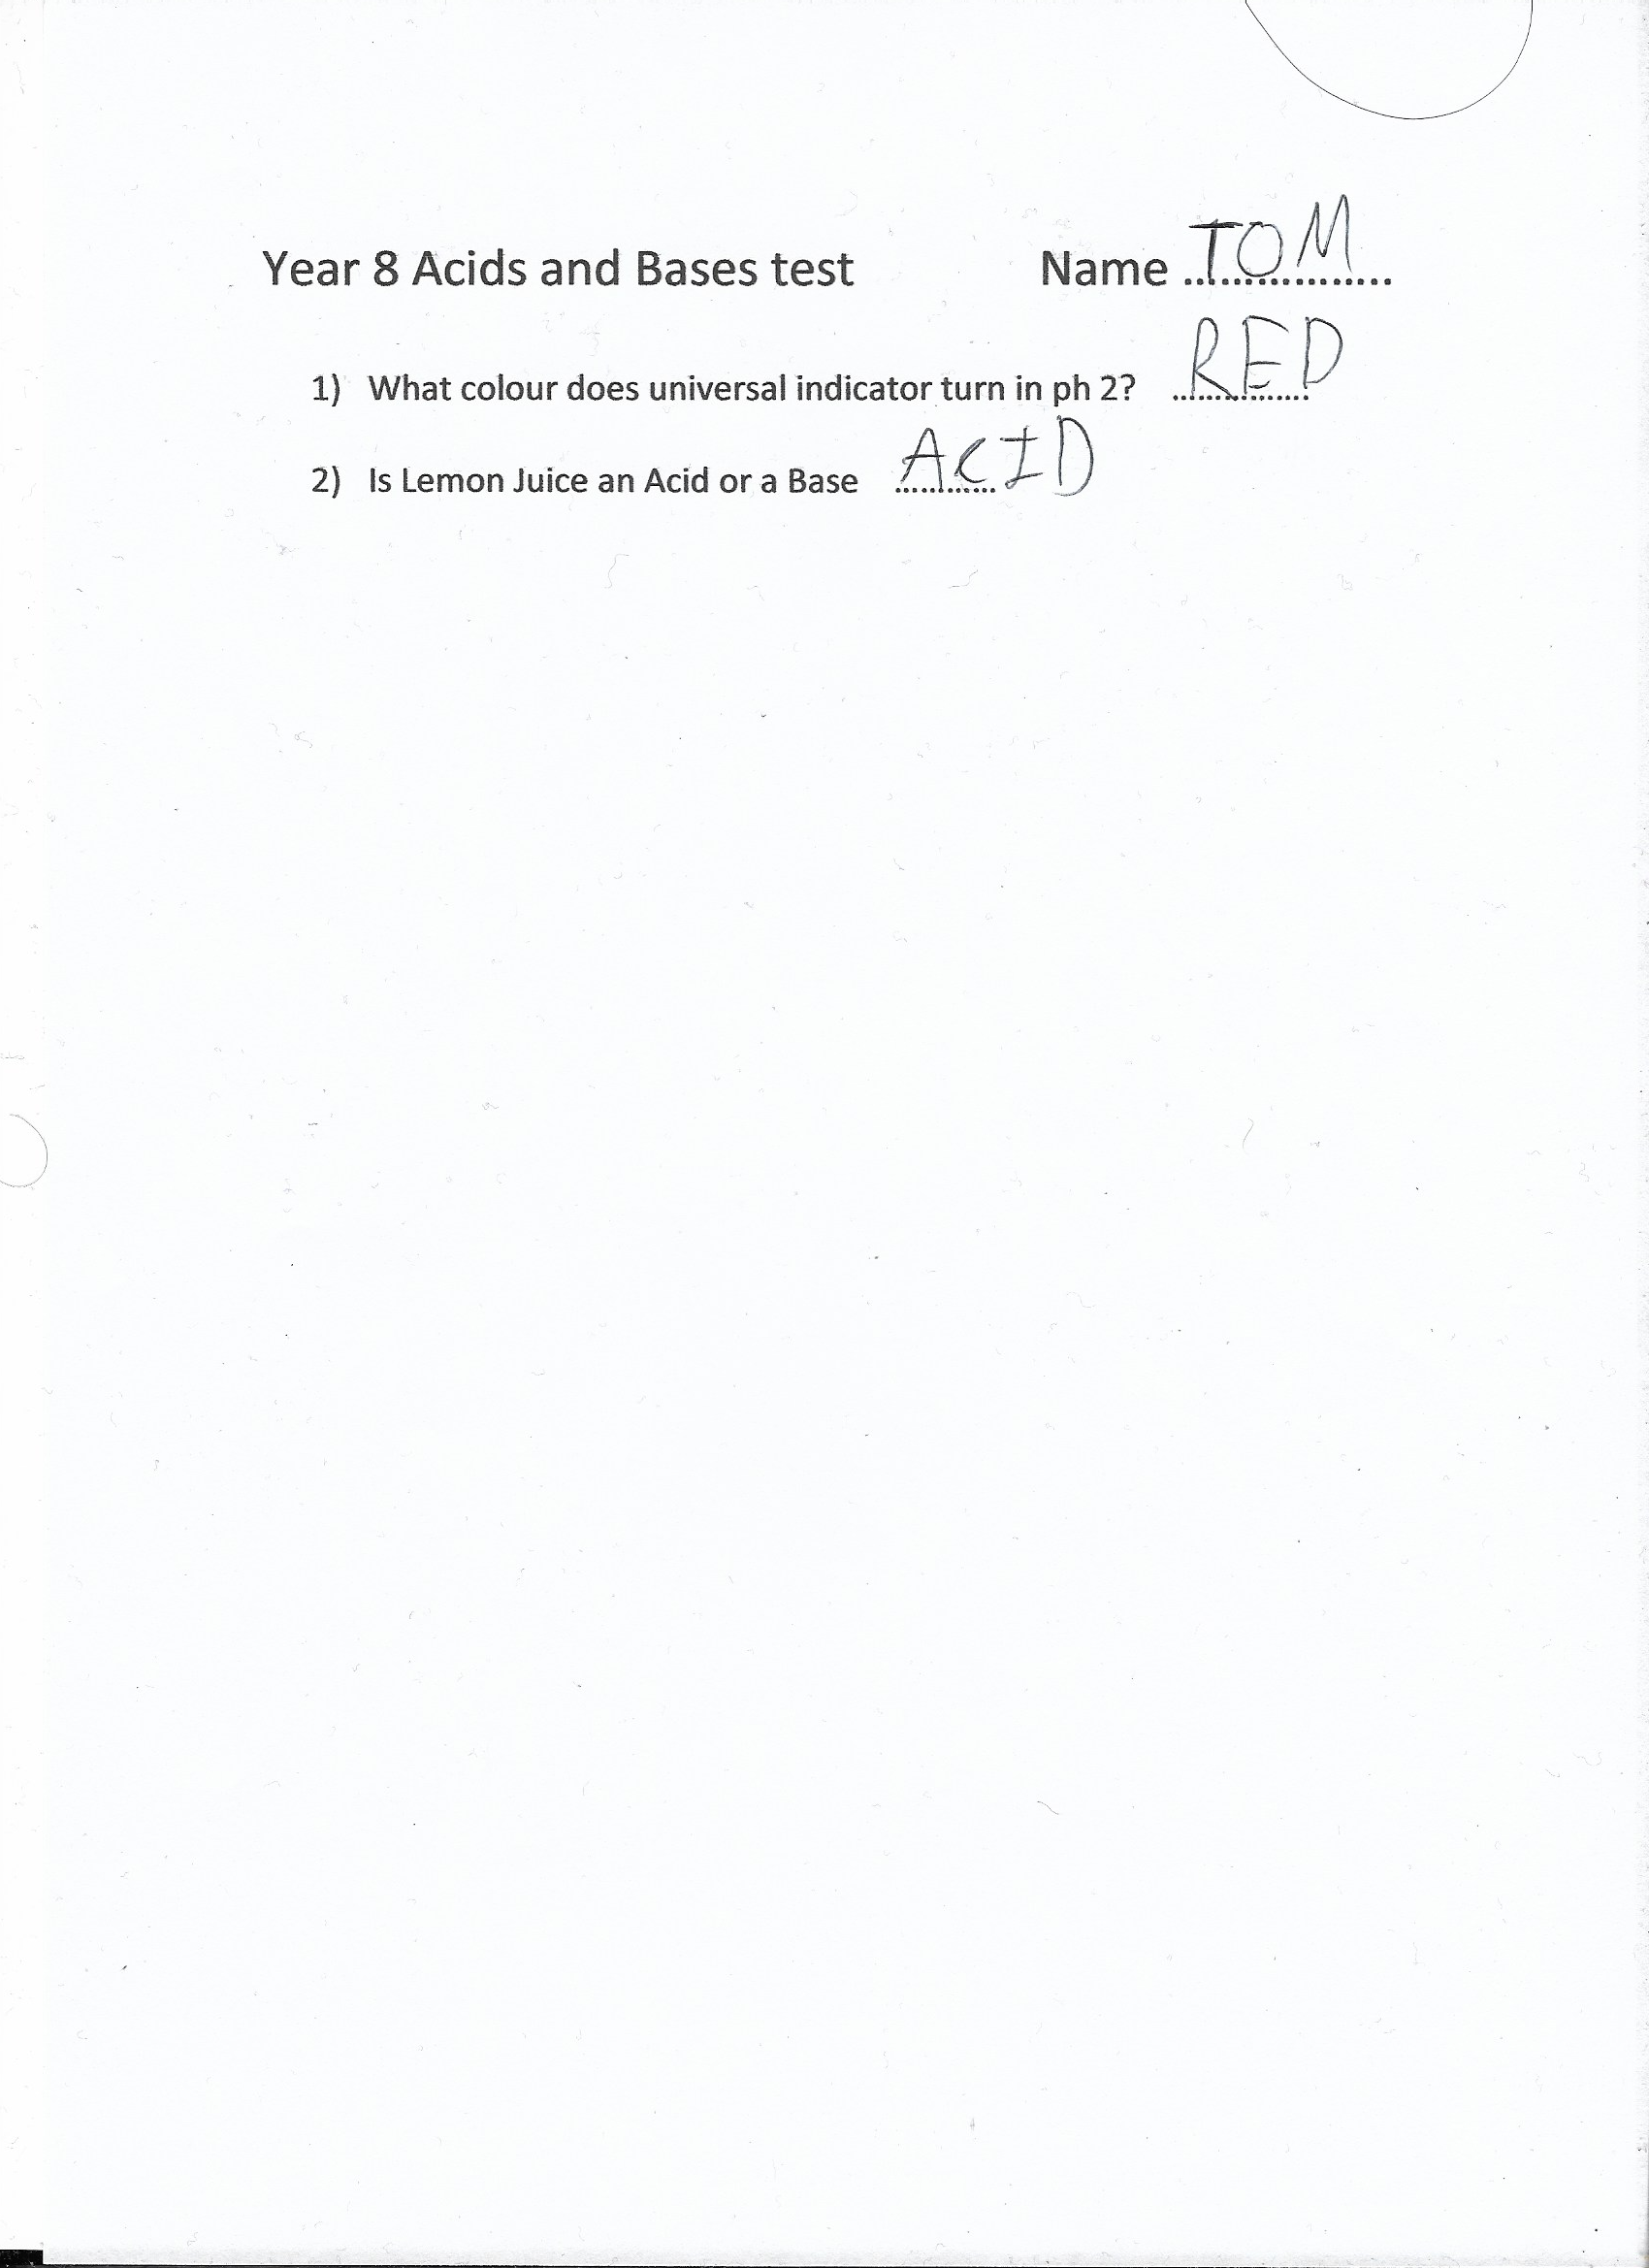 Year 8 Acids and Bases test Name TOM
1) What colour does universal indicator turn in ph 2? RED
2) Is Lemon Juice an Acid or a Base ACID